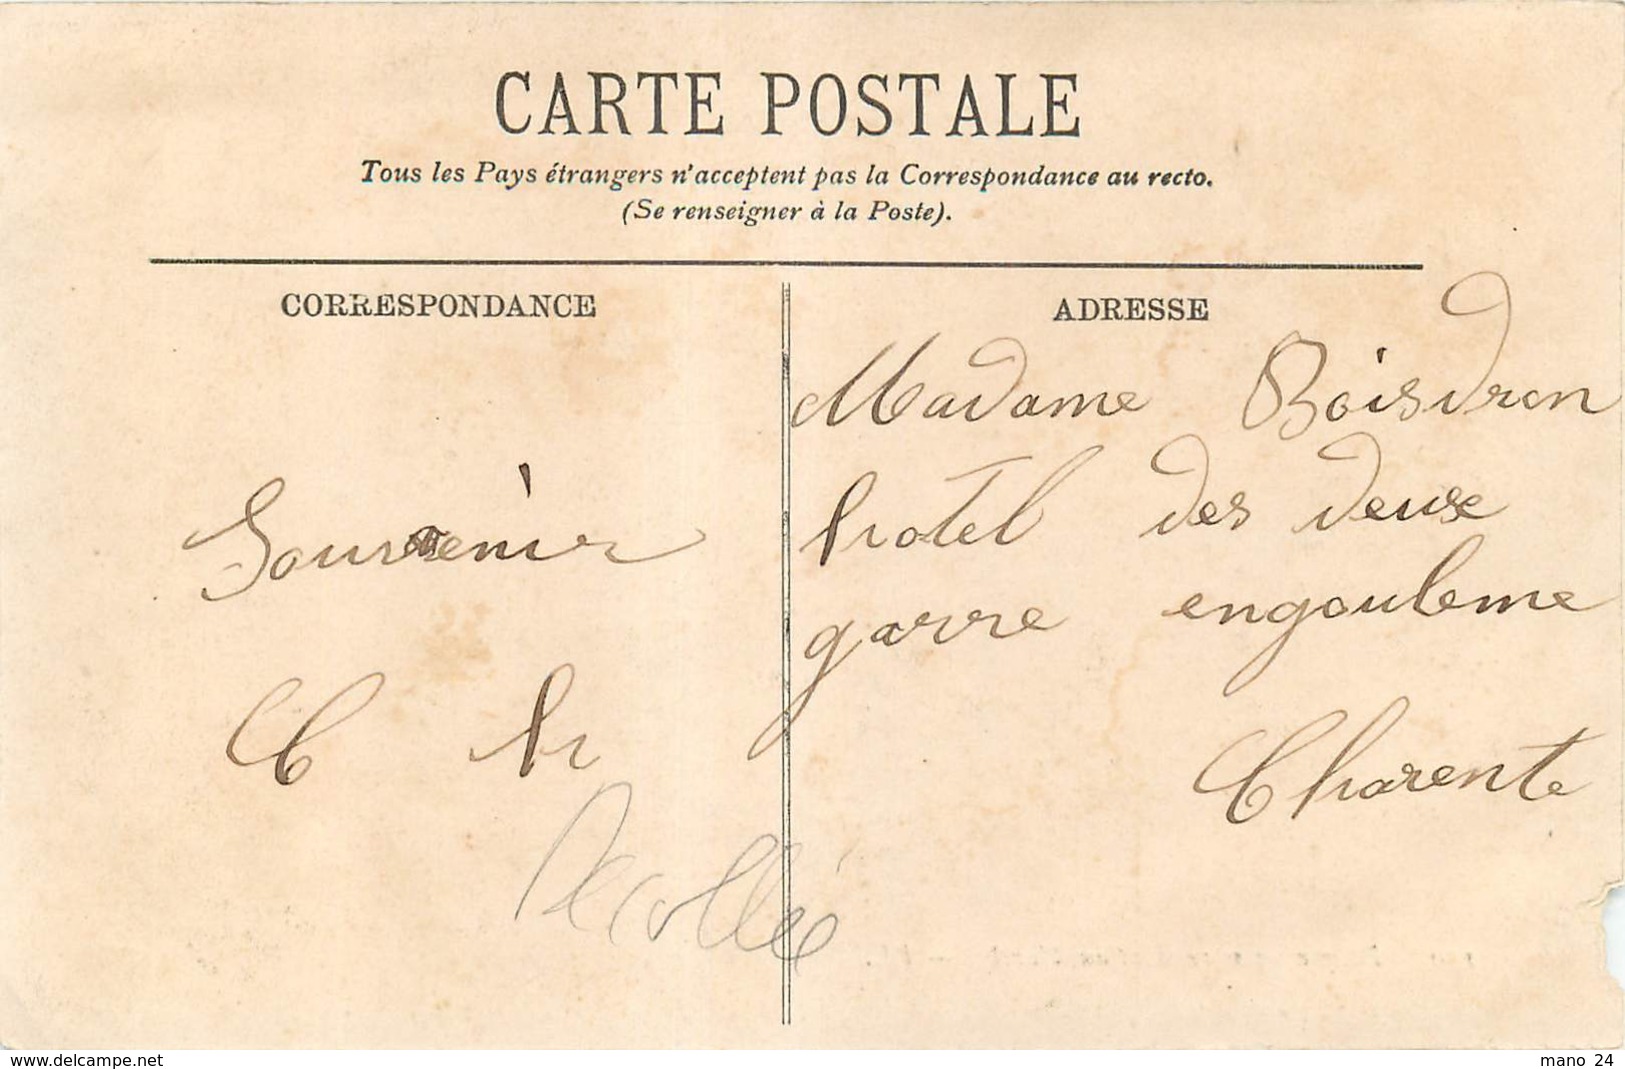 CARTE POSTALE
Tous les Pays étrangers n'acceptent pas la Correspondance au recto.
(Se renseigner à la Poste).
CORRESPONDANCE
Souvenir
C h
Recollée
ADRESSE
Madame Boisdron
hotel des deux
garre engouleme
Charente
www.delcampe.net
mano_24